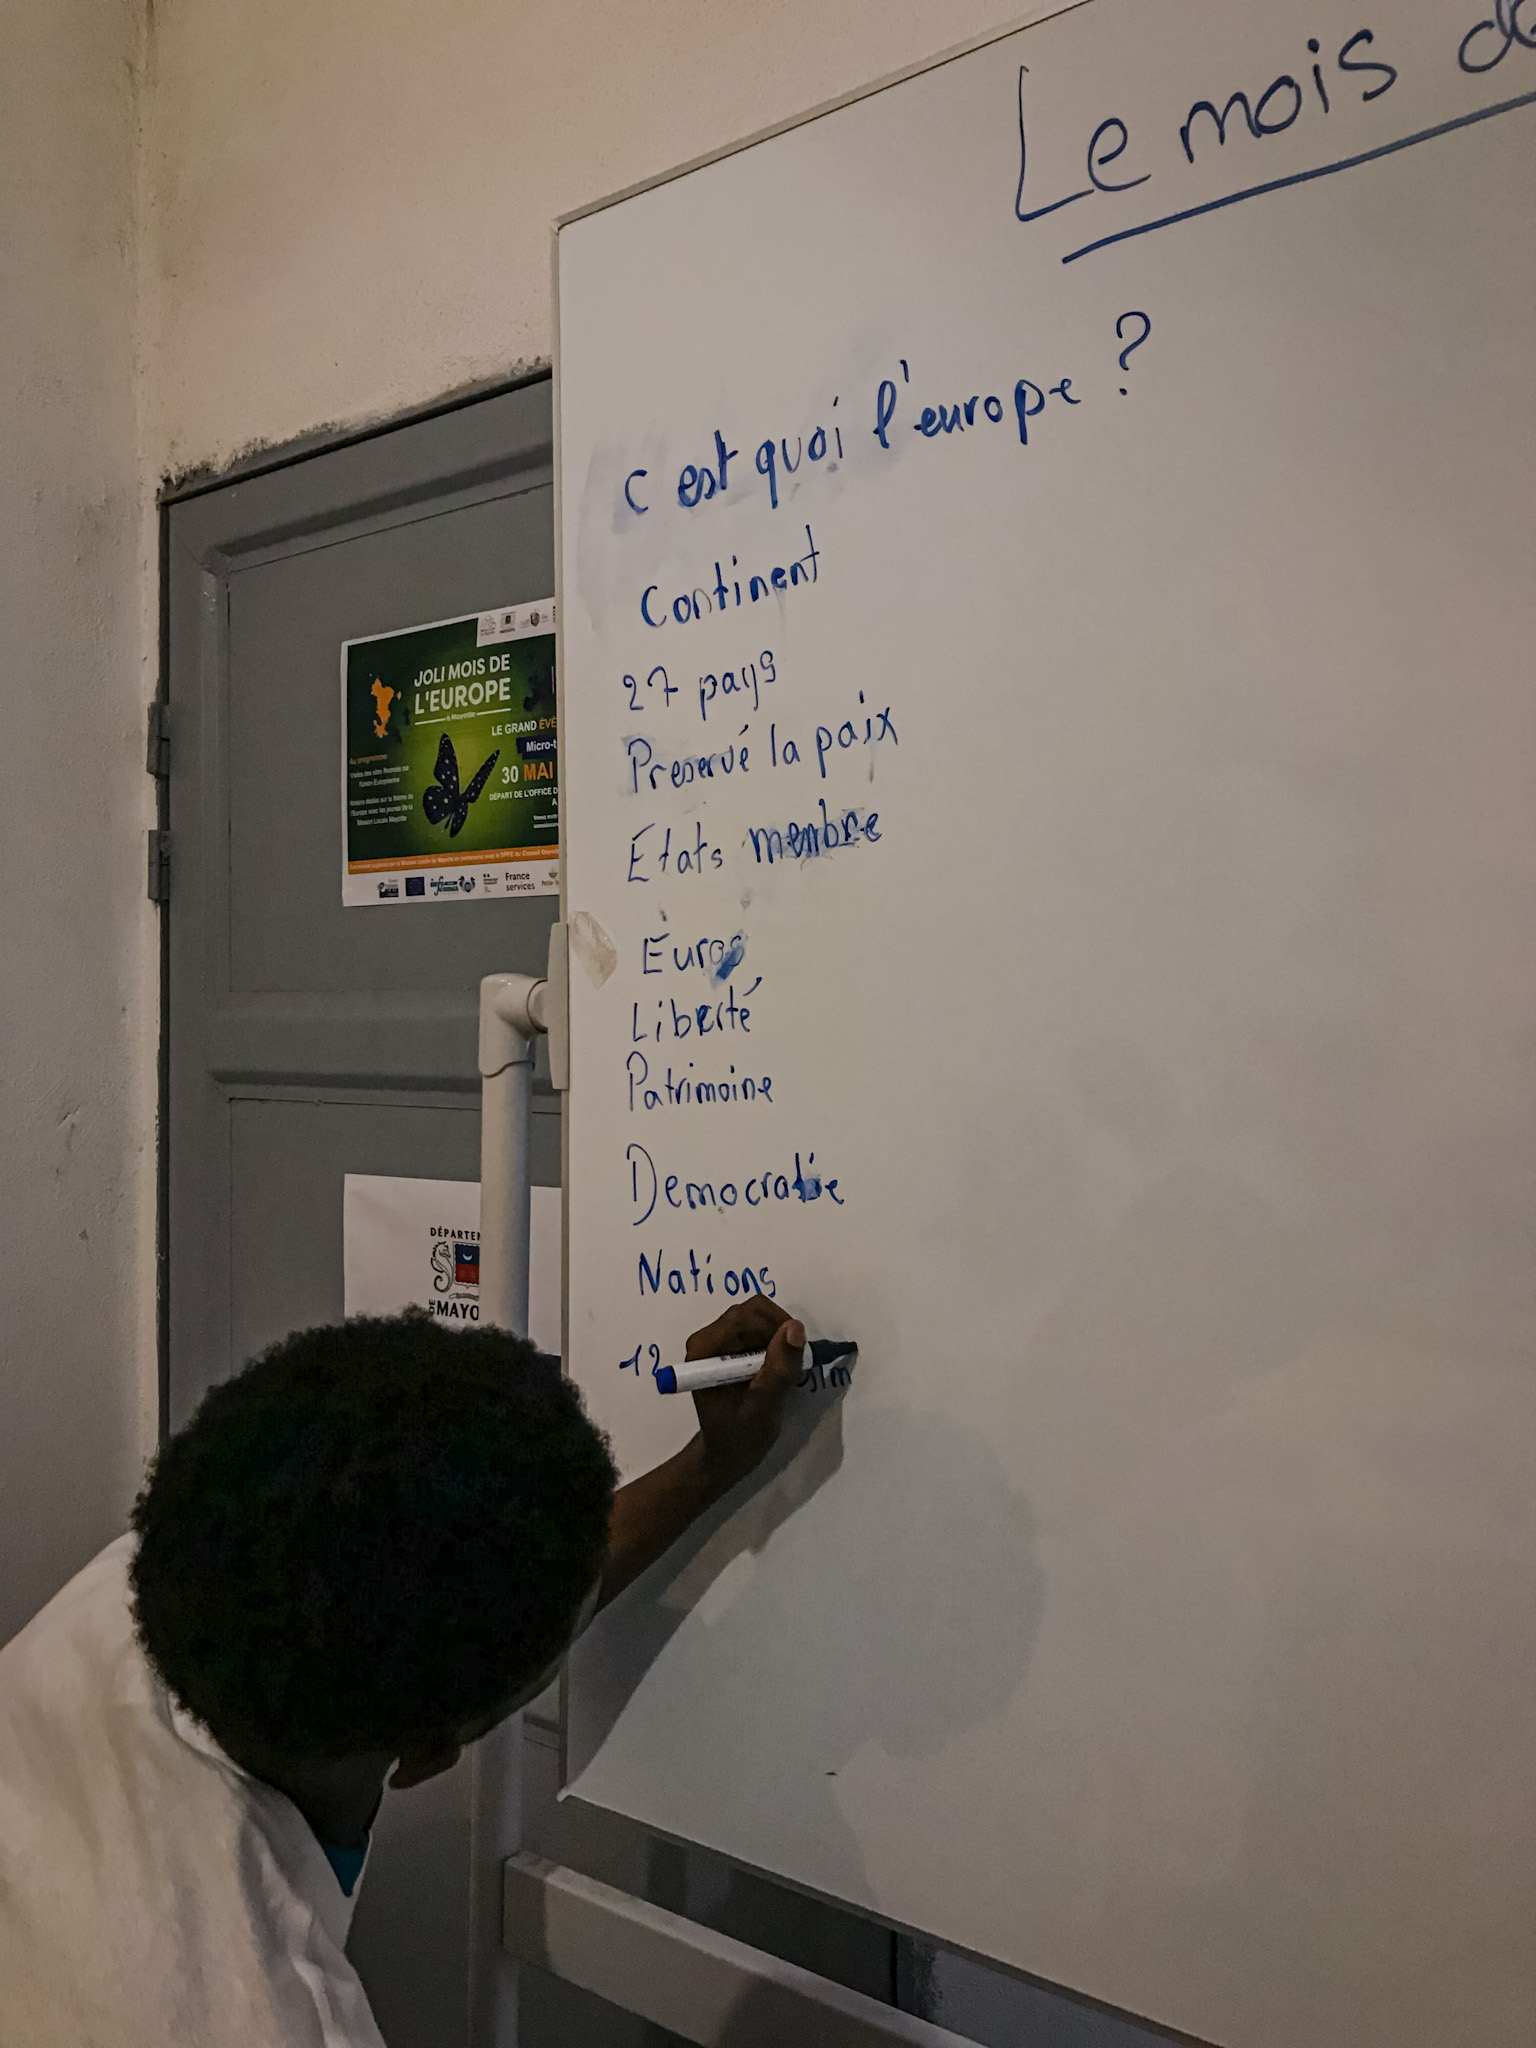 Le mois de
c est quoi l'europe ?
Continent
27 pays
Preservé la paix
Etats membre
Euros
Liberté
Patrimoine
Democratie
Nations
12
JOLI MOIS DE
L'EUROPE
à Mayotte
LE GRAND ÉVÉ
Micro-t
30 MAI
DÉPART DE L'OFFICE D
Au programme
France
services
DÉPARTEM
DE
MAYO